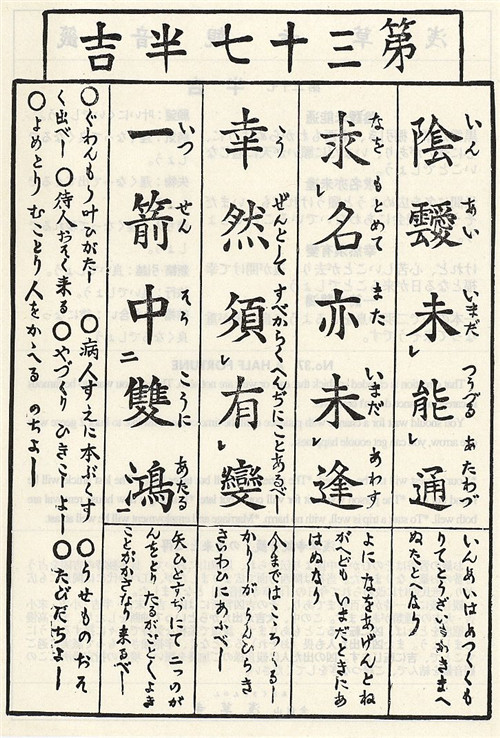 第三十七半吉
いん あい いまだ つうづる あたわづ
陰靉未能通
いんあいは あつくくも
りてとうざいもわきまへ
ぬたとへなり
なを もとめて また いまだ あわす
求レ名亦未レ逢
よに なをあげんとね
がへども いまだときにあ
はぬなり
幸然須レ有レ變
今まではこゝろくるし
かりしが うんひらき
さいわひにあふべし
いつ せん そう こうに あたる
一箭中二雙鴻
矢ひとすぢにて二つのが
ことかさなり来るべし
○ぐわんもう叶ひがたし ○病人すえに本ぶくす ○うせものおそ
く出べし ○待人おそく来る ○やづくり ひきこしよし ○たびだちよし
○よめとり むことり 人をかゝへる のちよし